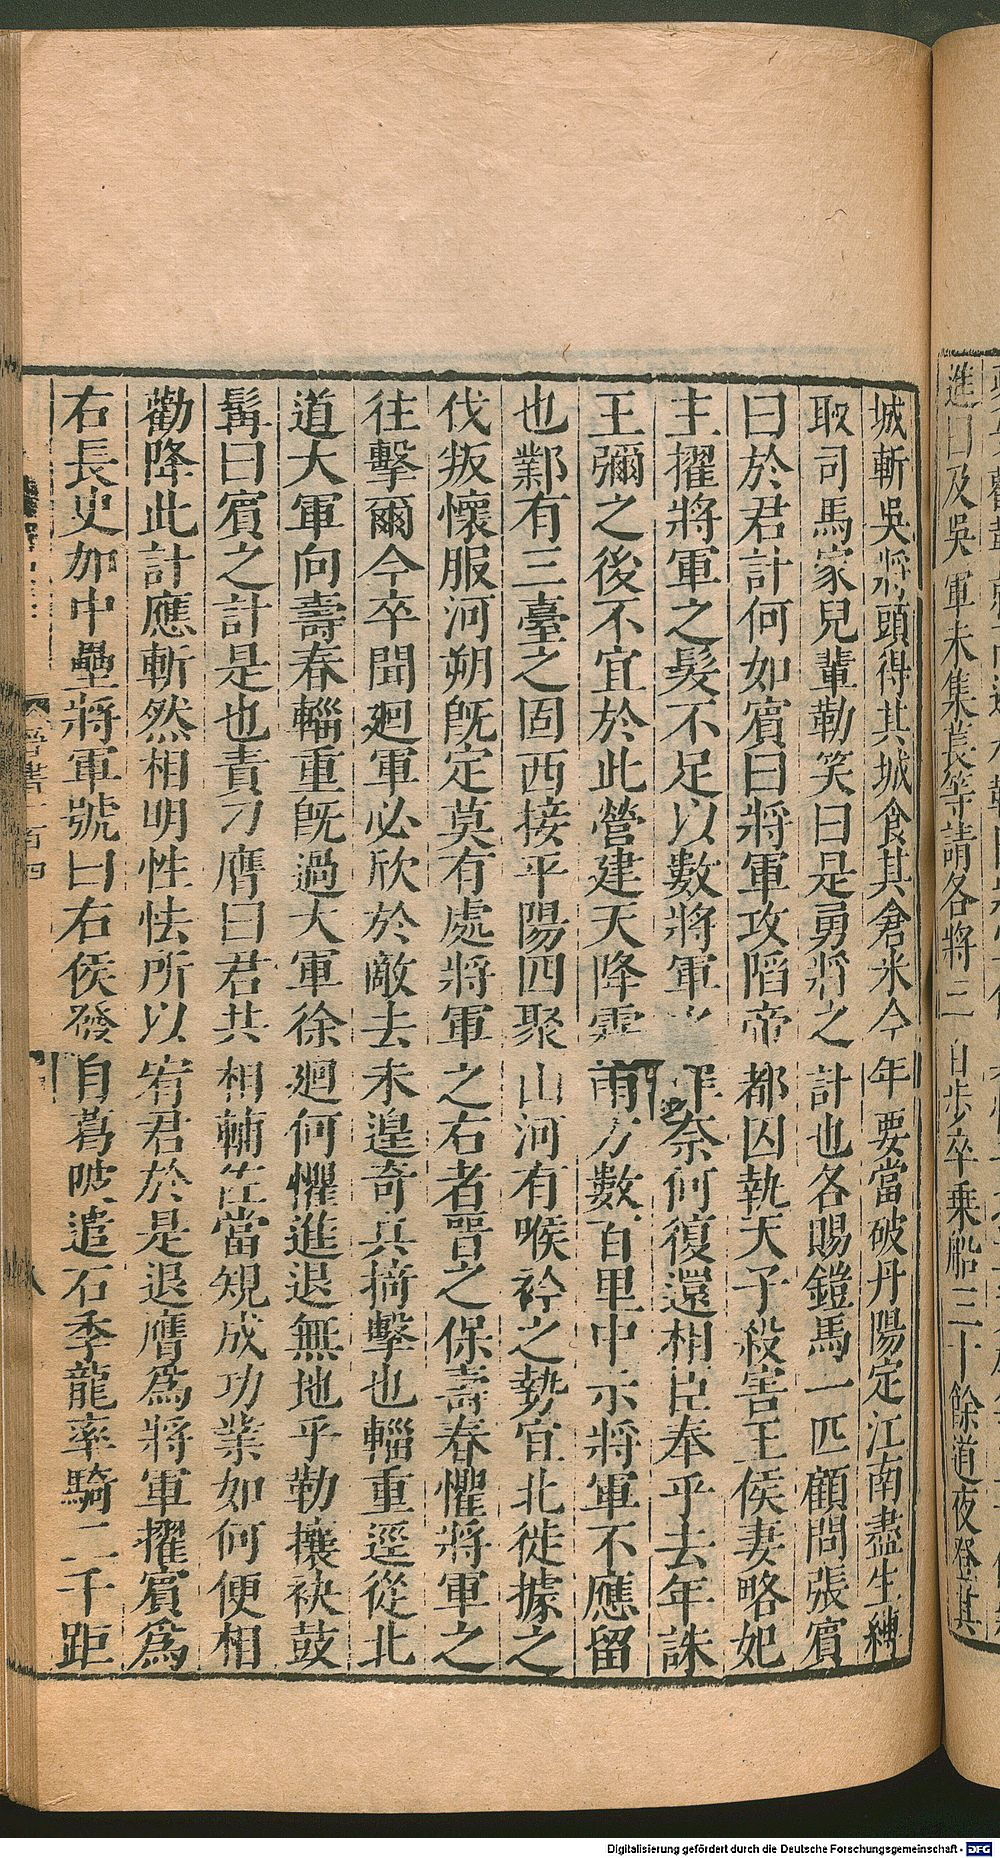 進曰及吳軍未集萇等請各將三百步卒乗船三十餘道夜登其
城斬吳將頭得其城食其倉米今年要當破丹陽定江南盡生縛
取司馬家兒輩勒笑曰是勇將之計也各賜鎧馬一匹顧問張賓
曰於君計何如賓曰將軍攻䧟帝都囚執天子殺害王侯妻略妃
主擢將軍之髮不足以數將軍之罪奈何復還相臣奉乎去年誅
王彌之後不宜於此營建天降霖雨方數百里中示將軍不應留
也鄴有三臺之固西接平陽四聚山河有喉衿之勢宜北徙據之
伐叛懷服河朔旣定莫有處將軍之右者晉之保壽春懼將軍之
往擊爾今卒聞廻軍必欣於敵去未遑奇兵掎擊也輜重逕從北
道大軍向壽春輜重旣過大軍徐廻何懼進退無地乎勒攘袂鼓
髯曰賓之計是也責刁膺曰君共相輔佐當規成功業如何便相
勸降此計應斬然相明性怯所以宥君於是退膺爲將軍擢賓爲
右長史加中壘將軍號曰右侯發自葛陂遣石季龍率騎二千距
晉書一百四
八
Digitalisierung gefördert durch die Deutsche Forschungsgemeinschaft - DFG